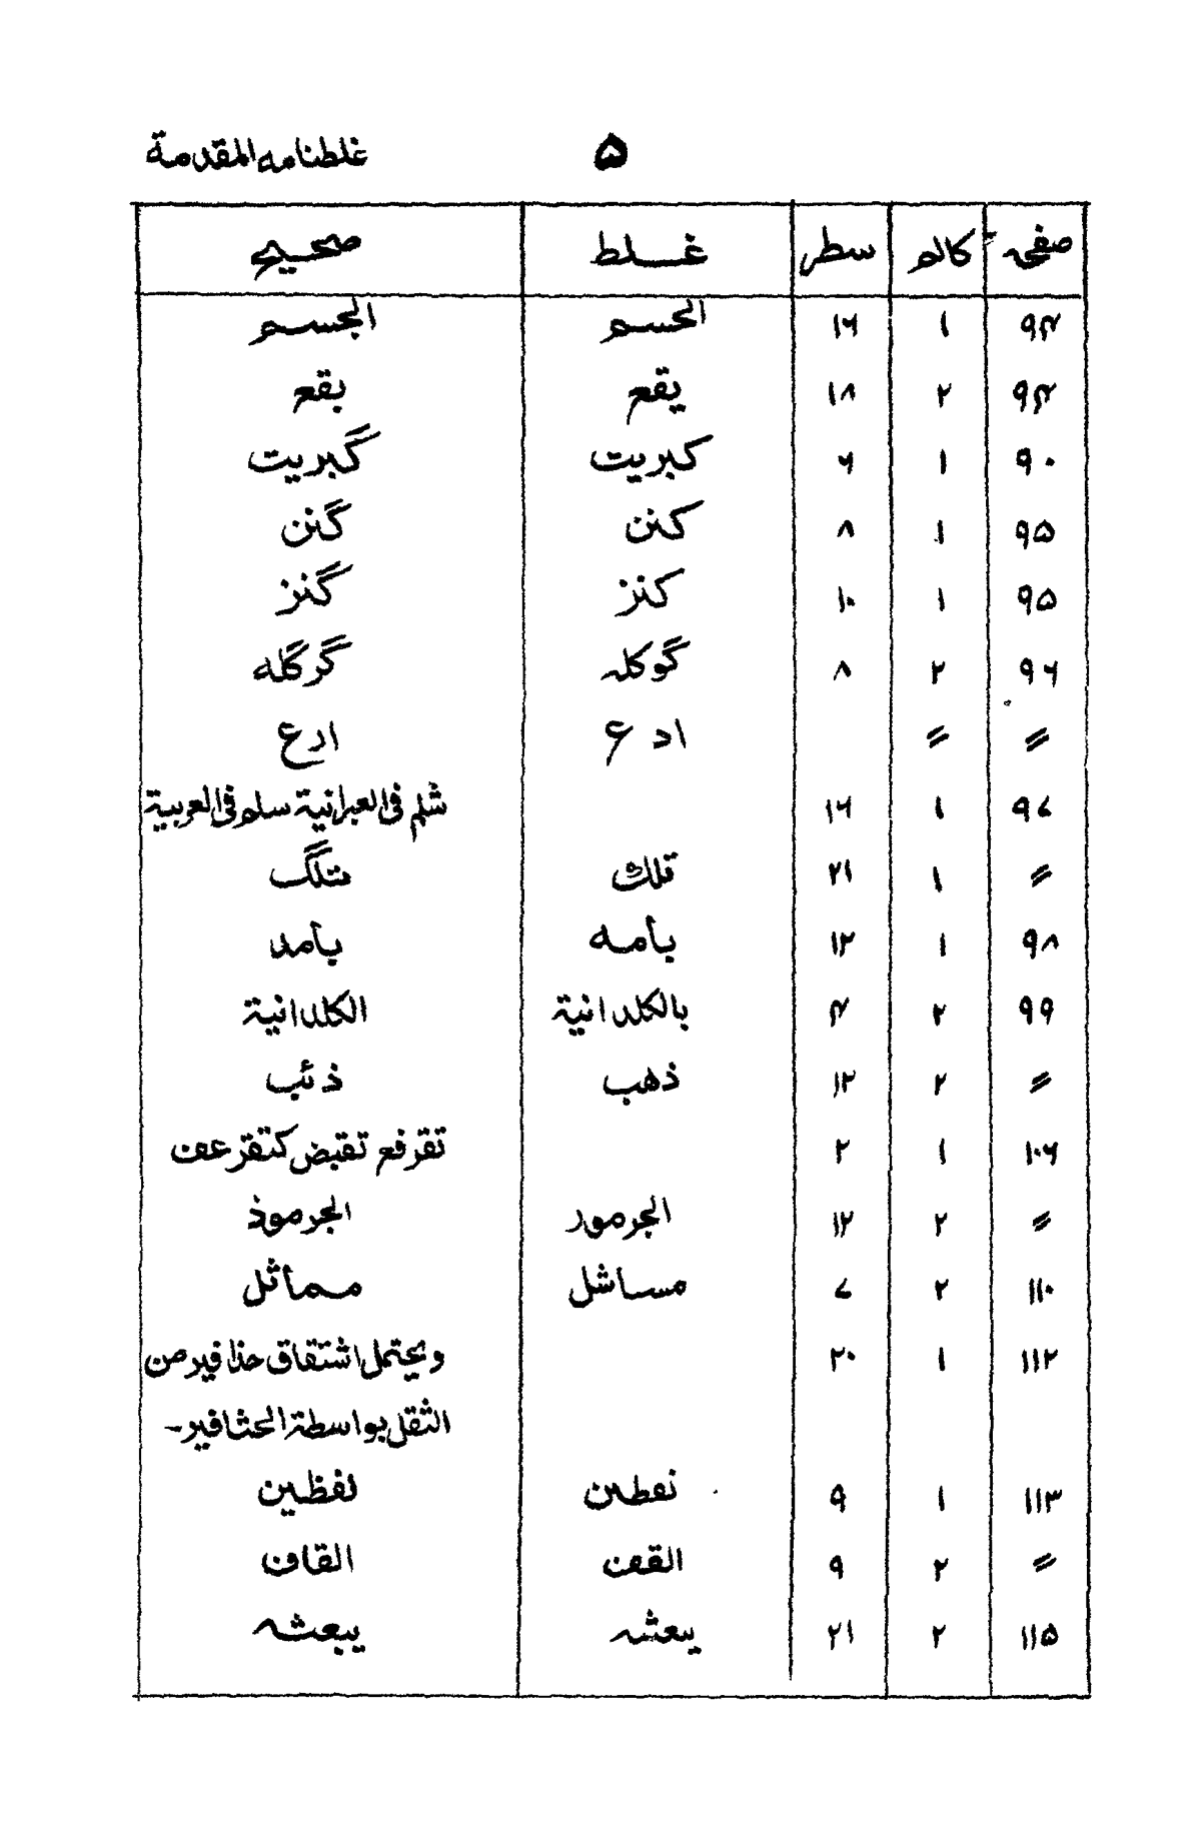 غلطنامه المقدمة ۵
صفحہ کالم سطر غلط صحیح
۹۴ ۱ ۱۶ الحسم الجسم
۹۴ ۲ ۱۸ يقع بقع
۹۰ ۱ ۶ كبريت گبريت
۹۵ ۱ ۸ كنن گنن
۹۵ ۱ ۱۰ كنز گنز
۹۶ ۲ ۸ گوكله گرگله
〃 〃 ادع ارع
۹۷ ۱ ۱۶ شلم فى العبرانية سلم فى العربية
〃 ۱ ۲۱ تلك تلگ
۹۸ ۱ ۱۲ يأمه يأمد
۹۹ ۲ ۴ بالكلدانية الكلدانية
〃 ۲ ۱۲ ذهب ذئب
۱۰۶ ۱ ۲ تقرفع تقبض كتقرعف
〃 ۲ ۱۲ الجرمور الجرموذ
۱۱۰ ۲ ۷ مساشل مماثل
۱۱۲ ۱ ۲۰ ويحتمل اشتقاق حذافير من
الثقل بواسطة الحثافير۔
۱۱۳ ۱ ۹ نفطين لفظين
〃 ۲ ۹ القفن القاف
۱۱۵ ۲ ۲۱ يبعشه يبعثه